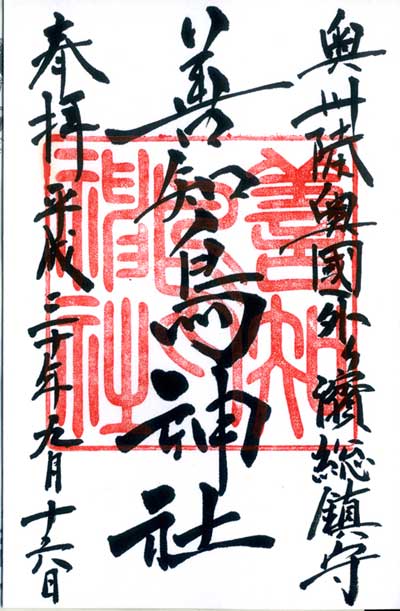 奥州陸奥國外ヶ濱総鎮守
善知鳥神社
奉拝 平成二十年九月十六日
善知鳥神社